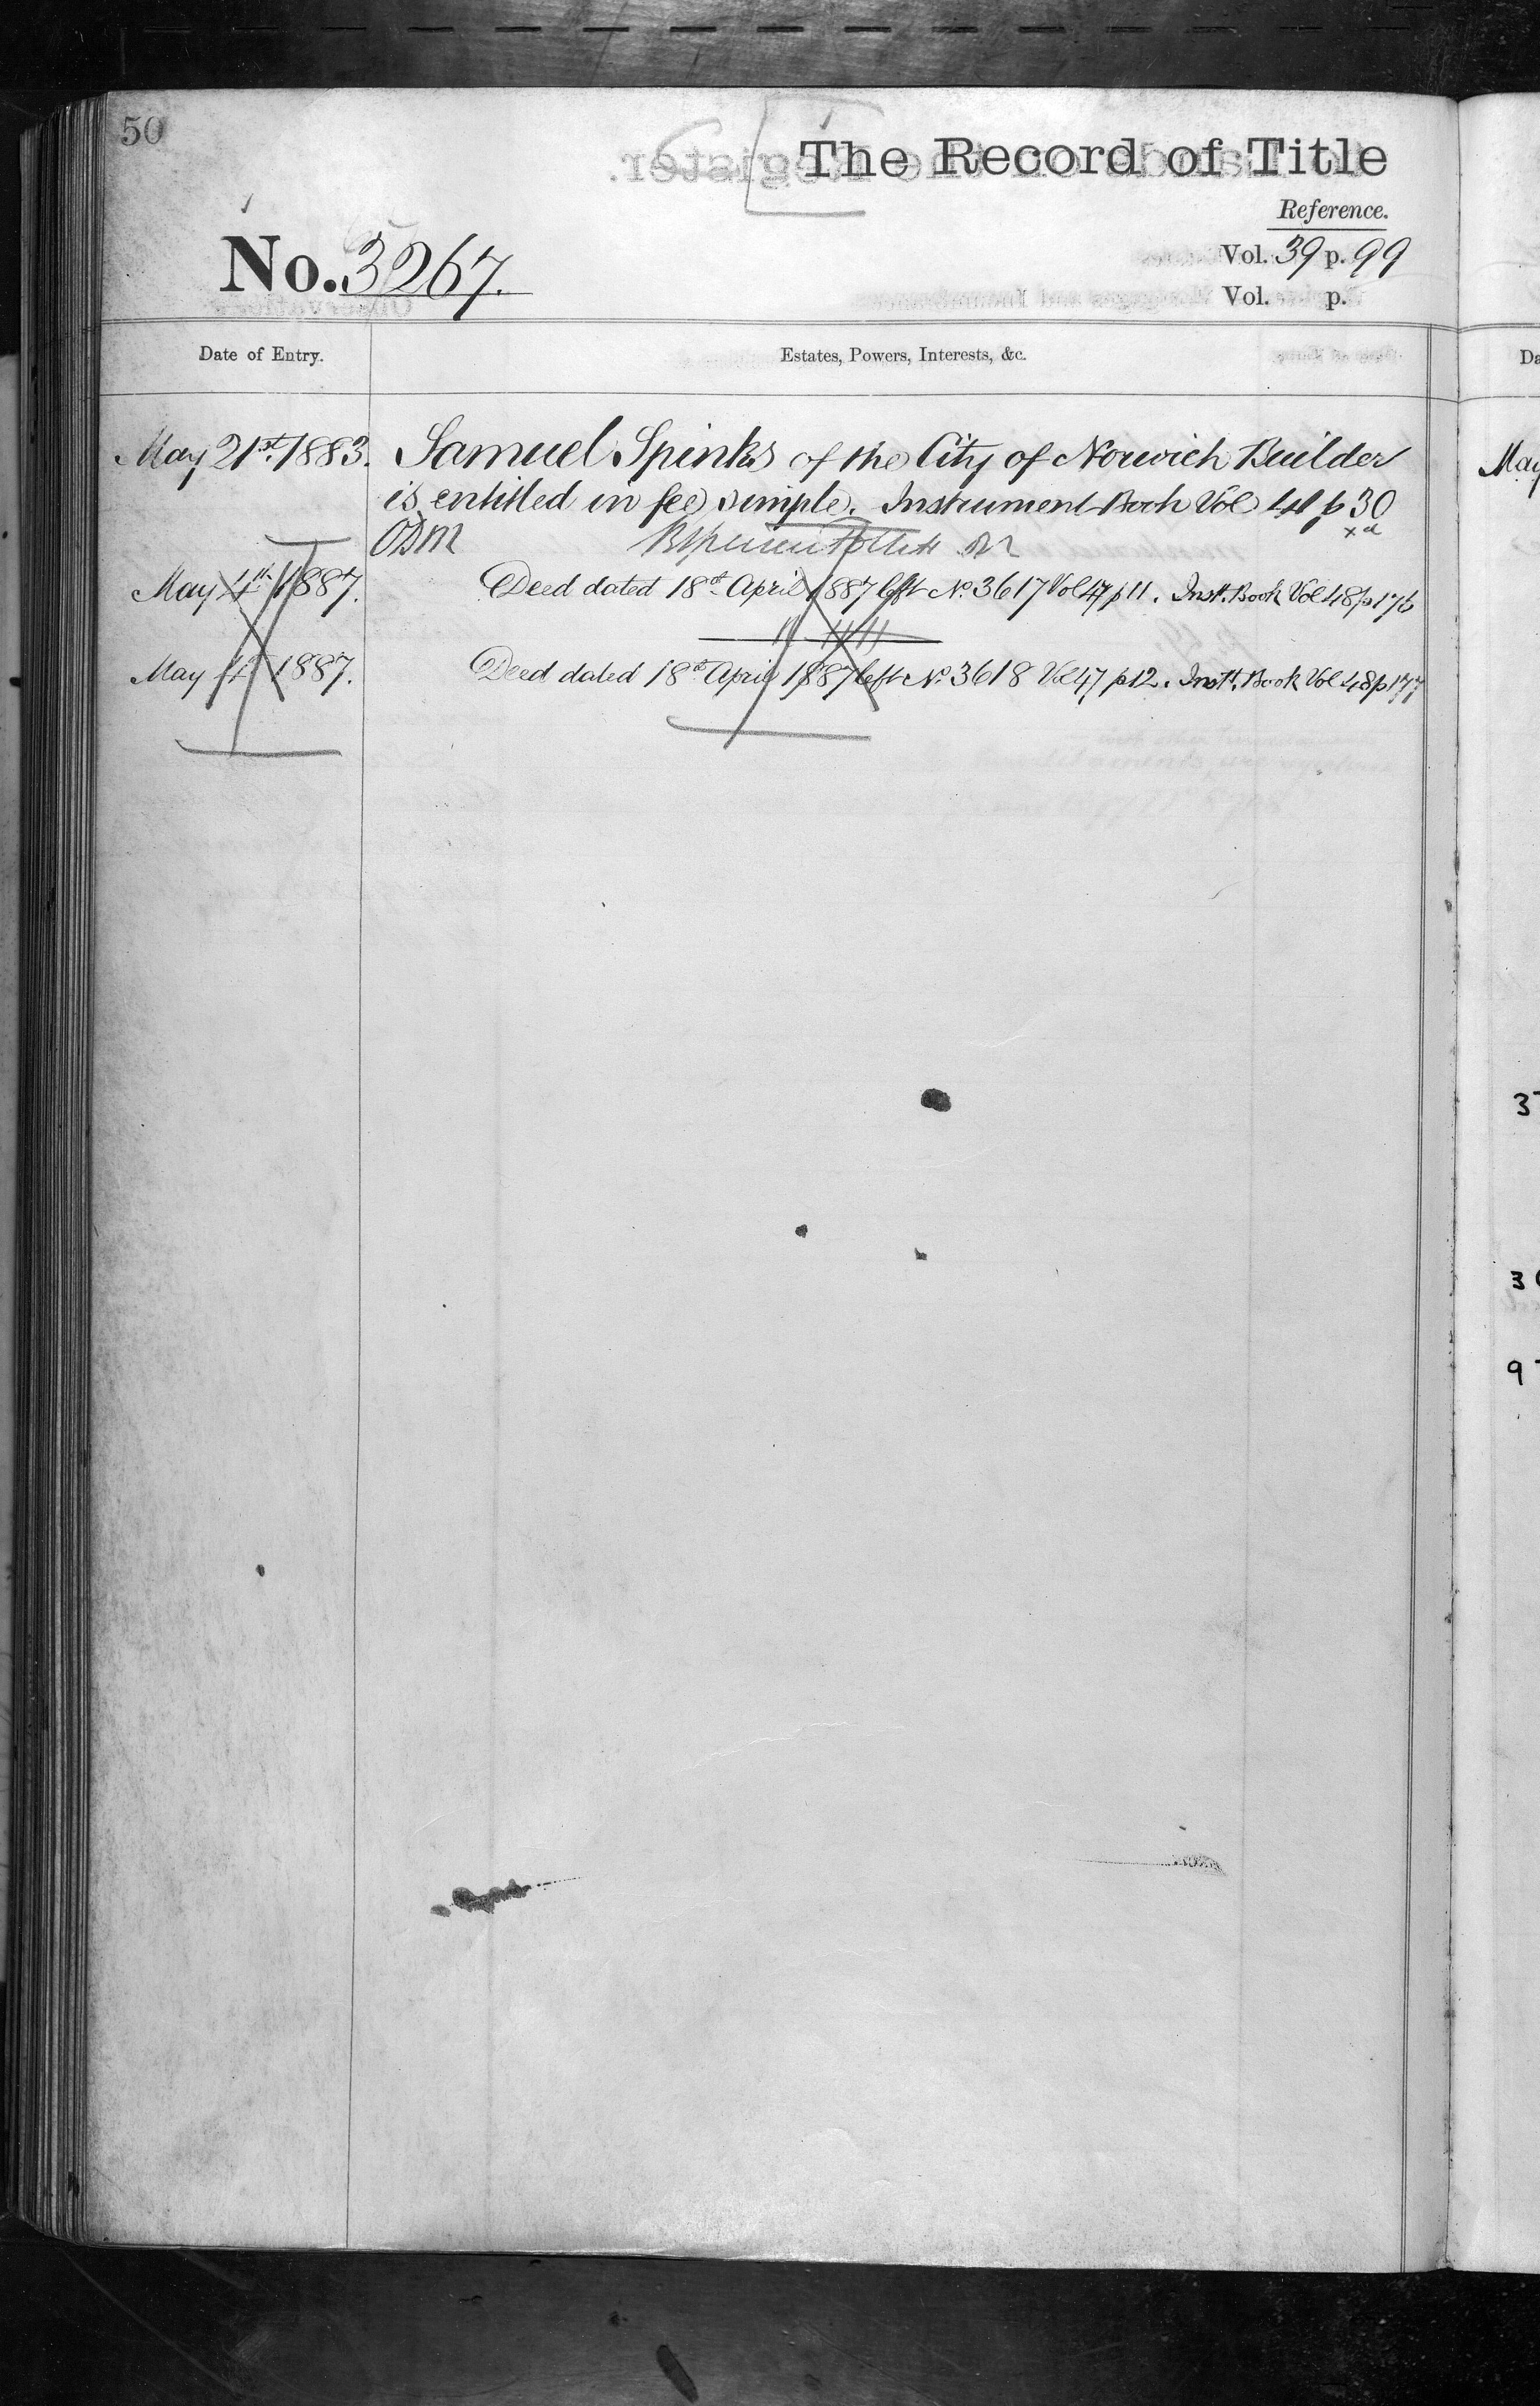 50
The Record of Title
Reference.
No. 3267.
Vol. 39 p. 99
Vol. p.
Date of Entry.
Estates, Powers, Interests, &c.
May 21st. 1883. Samuel Spinks of the City of Norwich Builder
is entitled in fee simple. Instrument Book Vol 41 p 30
May 4th 1887. Deed dated 18th April 1887 left No. 3617 Vol 47 p 11. Inst. Book Vol 48 p 176
May 4th 1887. Deed dated 18th April 1887 left No. 3618 Vol 47 p 12. Instt. Book Vol 48 p 177